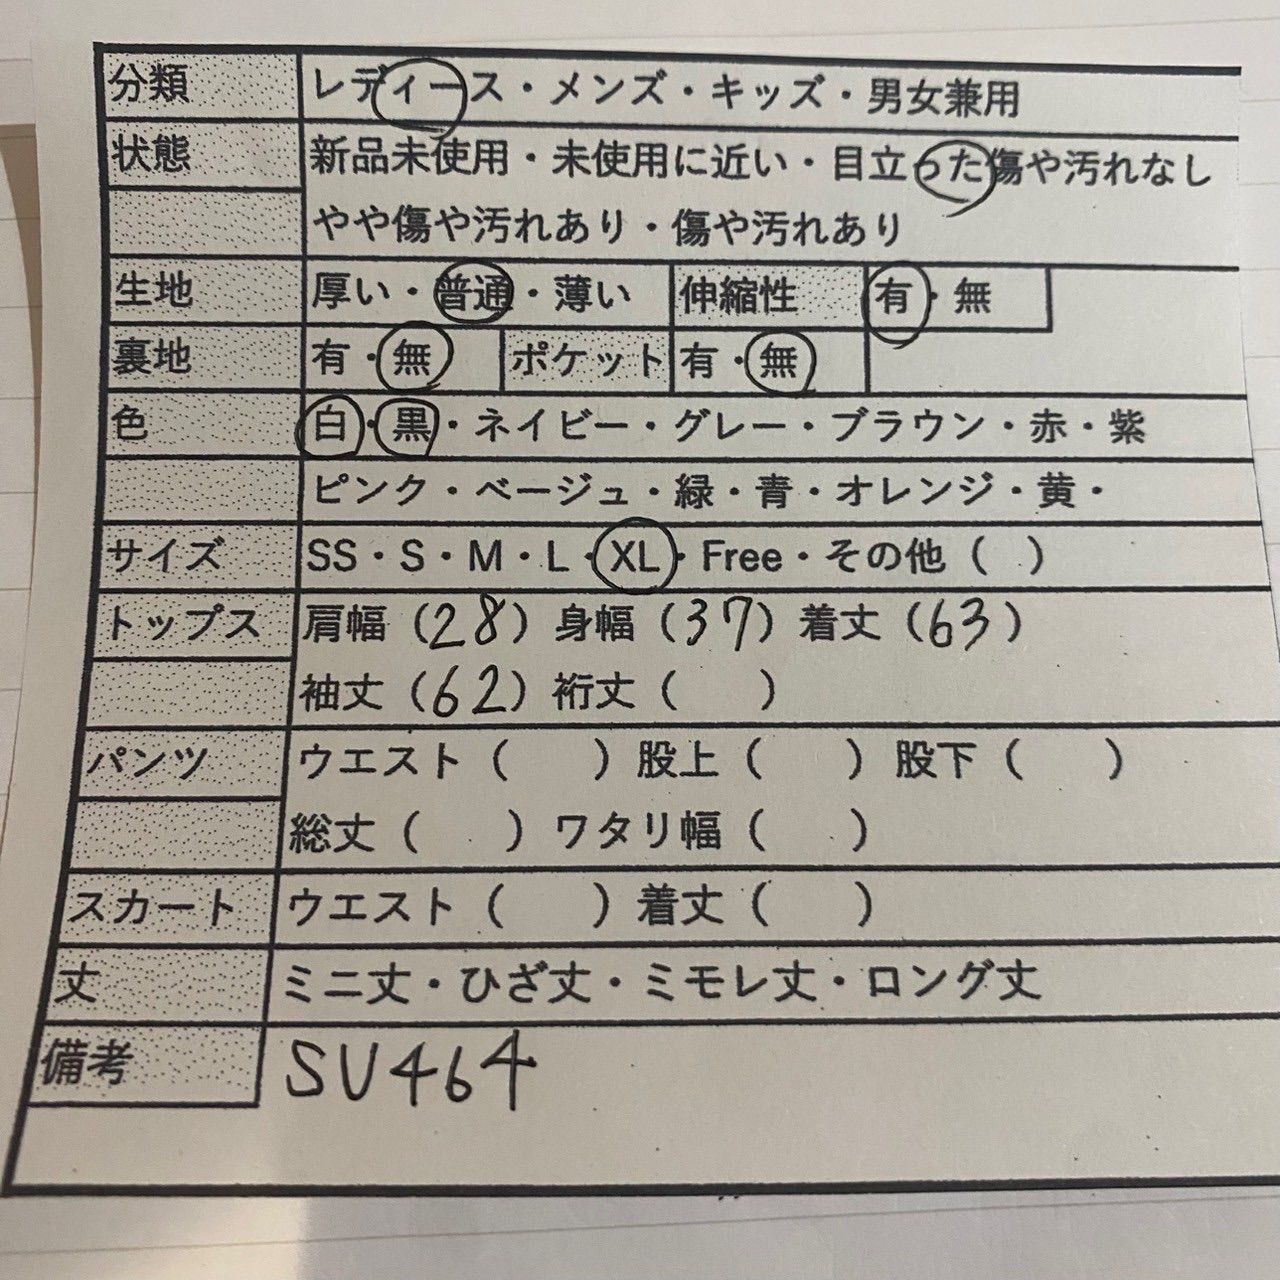 分類 レディース・メンズ・キッズ・男女兼用
状態 新品未使用・未使用に近い・目立った傷や汚れなし
やや傷や汚れあり・傷や汚れあり
生地 厚い・普通・薄い 伸縮性 有・無
裏地 有・無 ポケット 有・無
色 白・黒・ネイビー・グレー・ブラウン・赤・紫
ピンク・ベージュ・緑・青・オレンジ・黄・
サイズ SS・S・M・L・XL・Free・その他（ ）
トップス 肩幅（28）身幅（37）着丈（63）
袖丈（62）裄丈（ ）
パンツ ウエスト（ ）股上（ ）股下（ ）
総丈（ ）ワタリ幅（ ）
スカート ウエスト（ ）着丈（ ）
丈 ミニ丈・ひざ丈・ミモレ丈・ロング丈
備考 SU464